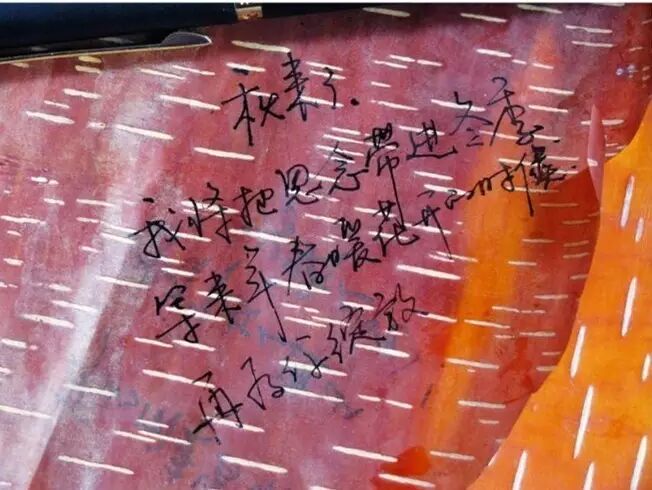 秋来了.
我将把思念带进冬季
等来年春暖花开的时候
再为你绽放